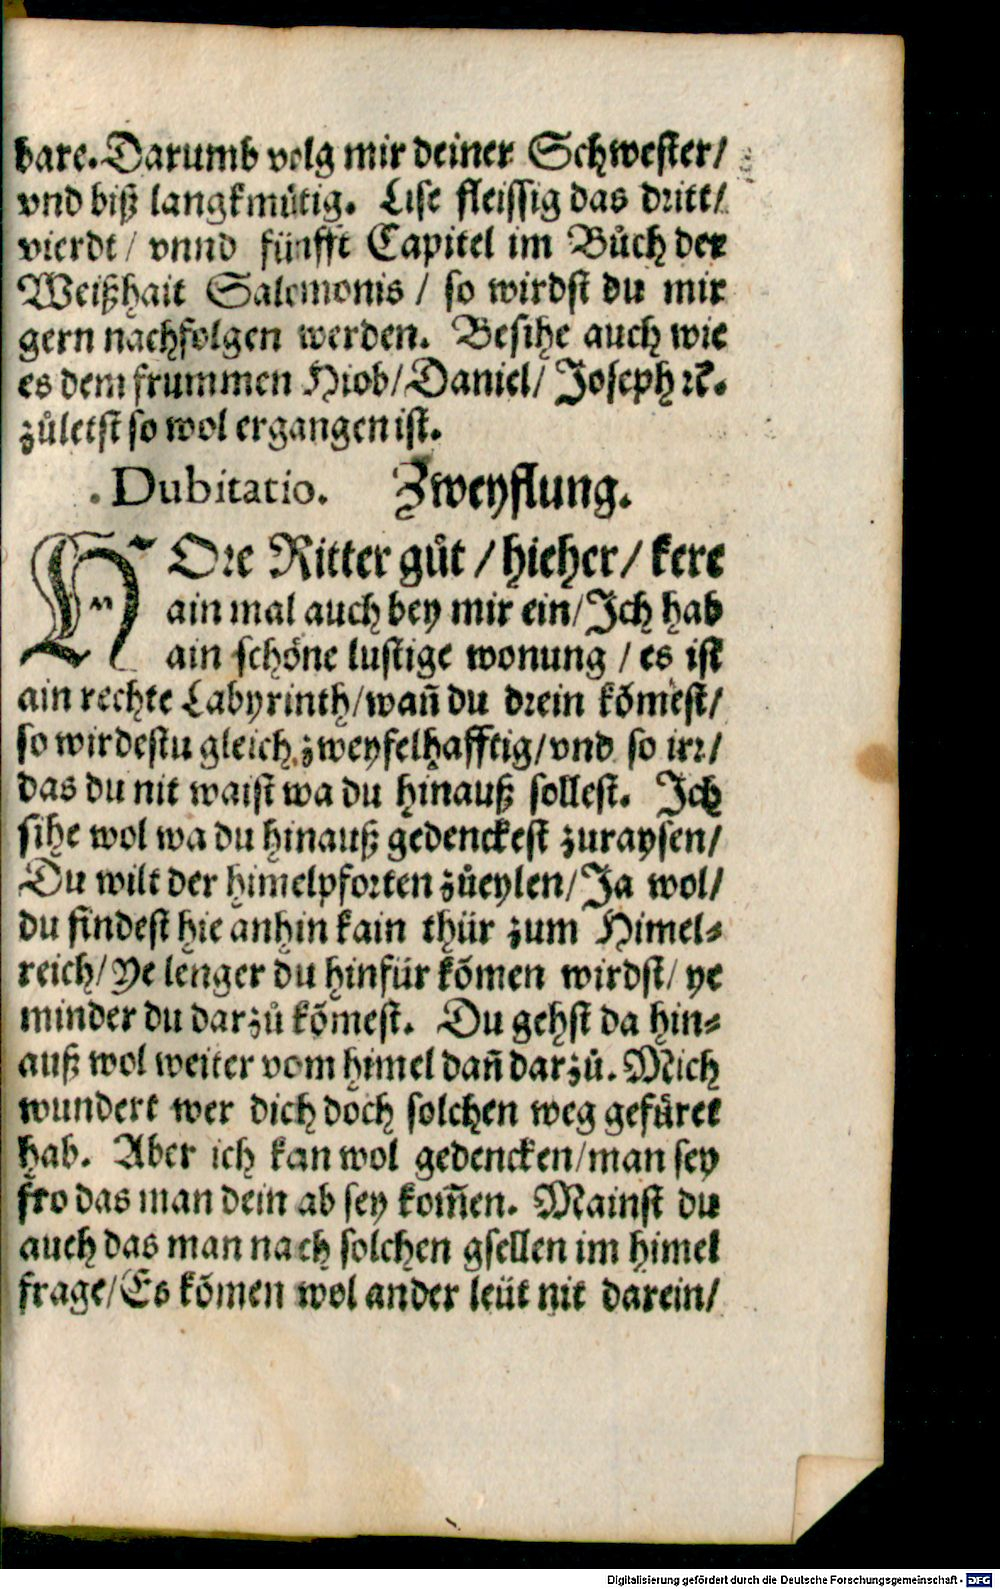 bare. Darumb volg mir deiner Schwester/
vnd biß langkmuͤtig. Lise fleissig das dritt/
vierdt / vnnd fünfft Capitel im Buͦch der
Weißhait Salomonis / so wirdst du mir
gern nachfolgen werden. Besihe auch wie
es dem frummen Hiob/ Daniel/ Joseph ꝛc.
zuͦletst so wol ergangen ist.
. Dubitatio. Zweyflung.
HOre Ritter guͦt / hieher / kere
ain mal auch bey mir ein/ Jch hab
ain schoͤne lustige wonung / es ist
ain rechte Labyrinth/ wañ du drein kõmest/
so wirdestu gleich zweyfelhafftig/ vnd so irr/
das du nit waist wa du hinauß sollest. Jch
sihe wol wa du hinauß gedenckest zuraysen/
Du wilt der himelpforten zuͦeylen/ Ja wol/
du findest hie anhin kain thür zum Himel⸗
reich/ Ye lenger du hinfür kõmen wirdst/ ye
minder du darzuͦ kõmest. Du gehst da hin⸗
auß wol weiter vom himel dañ darzuͦ. Mich
wundert wer dich doch solchen weg gefuͤret
hab. Aber ich kan wol gedencken/ man sey
fro das man dein ab sey kom̃en. Mainst du
auch das man nach solchen gsellen im himel
frage/ Es kõmen wol ander leüt nit darein/
Digitalisierung gefördert durch die Deutsche Forschungsgemeinschaft - DFG